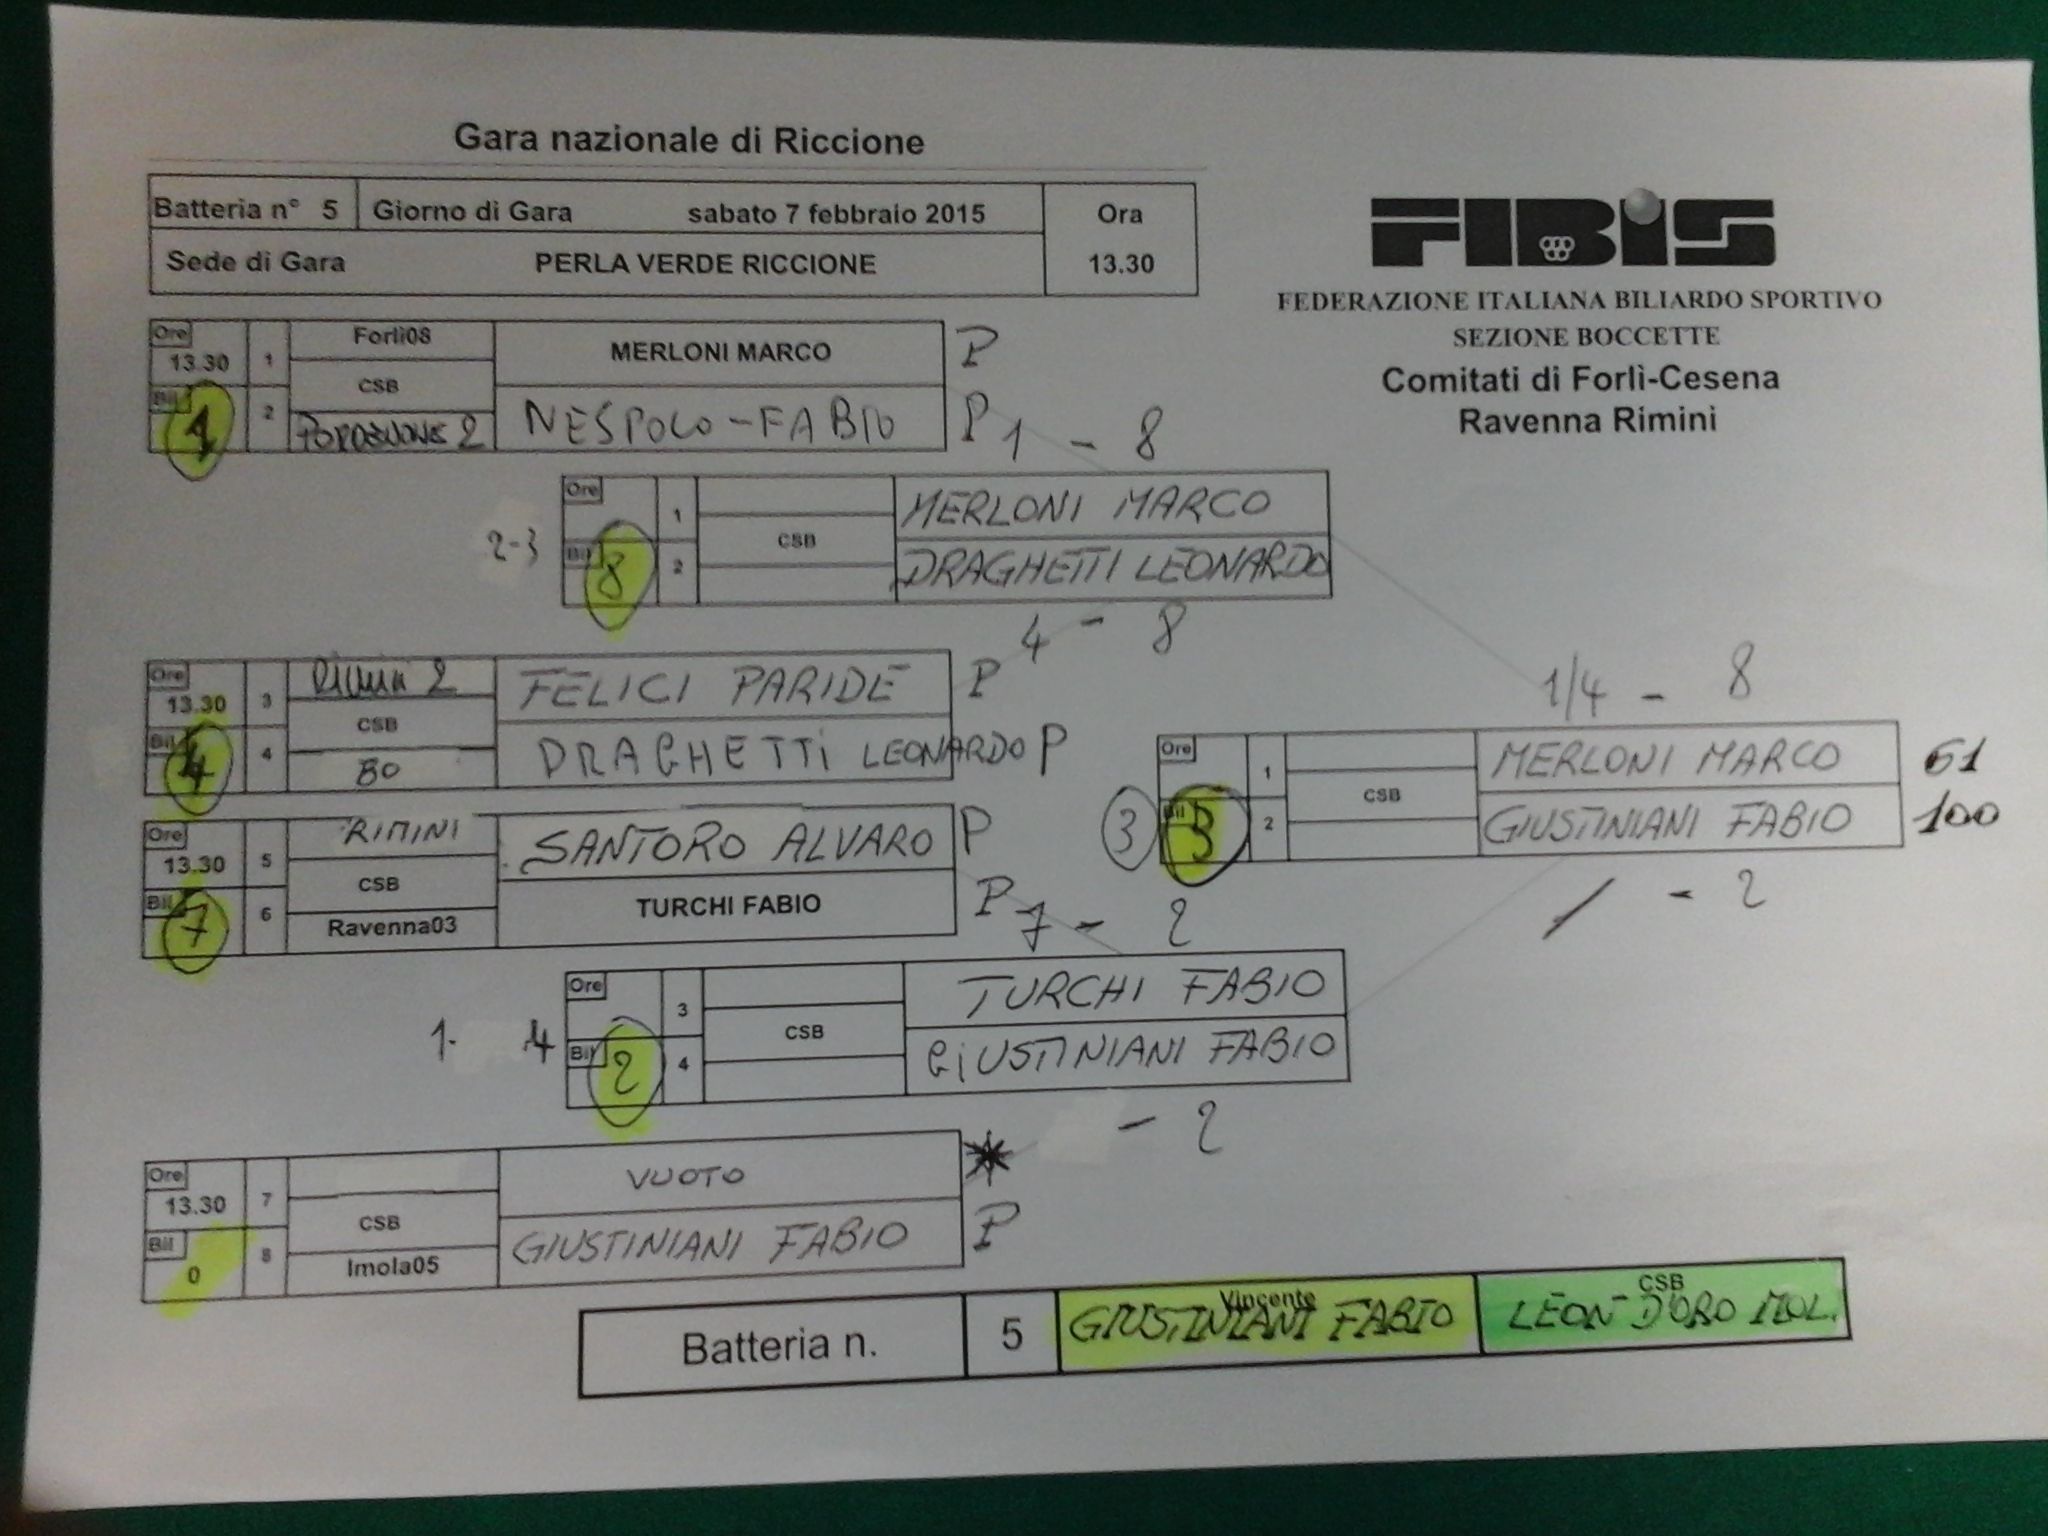 Gara nazionale di Riccione
Batteria n° 5 Giorno di Gara sabato 7 febbraio 2015 Ora
Sede di Gara PERLA VERDE RICCIONE 13.30
FIBiS
FEDERAZIONE ITALIANA BILIARDO SPORTIVO
SEZIONE BOCCETTE
Comitati di Forlì-Cesena
Ravenna Rimini
Ore 13.30 1 Forlì08 MERLONI MARCO P
CSB
Bil 1 2 PORDENONE 2 NESPOLO-FABIO P
1 - 8
Ore 1 MERLONI MARCO
2-3 CSB
Bil 8 2 DRAGHETTI LEONARDO
4 - 8
Ore 13.30 3 Rimini 2 FELICI PARIDE P
CSB
Bil 4 4 BO DRAGHETTi LEONARDO P
1/4 - 8
Ore 1 MERLONI MARCO 61
CSB
3 Bil 3 2 GIUSTINIANI FABIO 100
/ - 2
Ore 13.30 5 RIMINI SANTORO ALVARO P
CSB
Bil 7 6 Ravenna03 TURCHI FABIO P
7 - 2
Ore 3 TURCHI FABIO
1- 4 CSB
Bil 2 4 GiUSTINIANI FABIO
- 2
Ore 13.30 7 VUOTO
CSB
Bil 0 8 Imola05 GIUSTINIANI FABIO P
Vincente CSB
Batteria n. 5 GIUSTINIANI FABIO LEON D'ORO MOL.